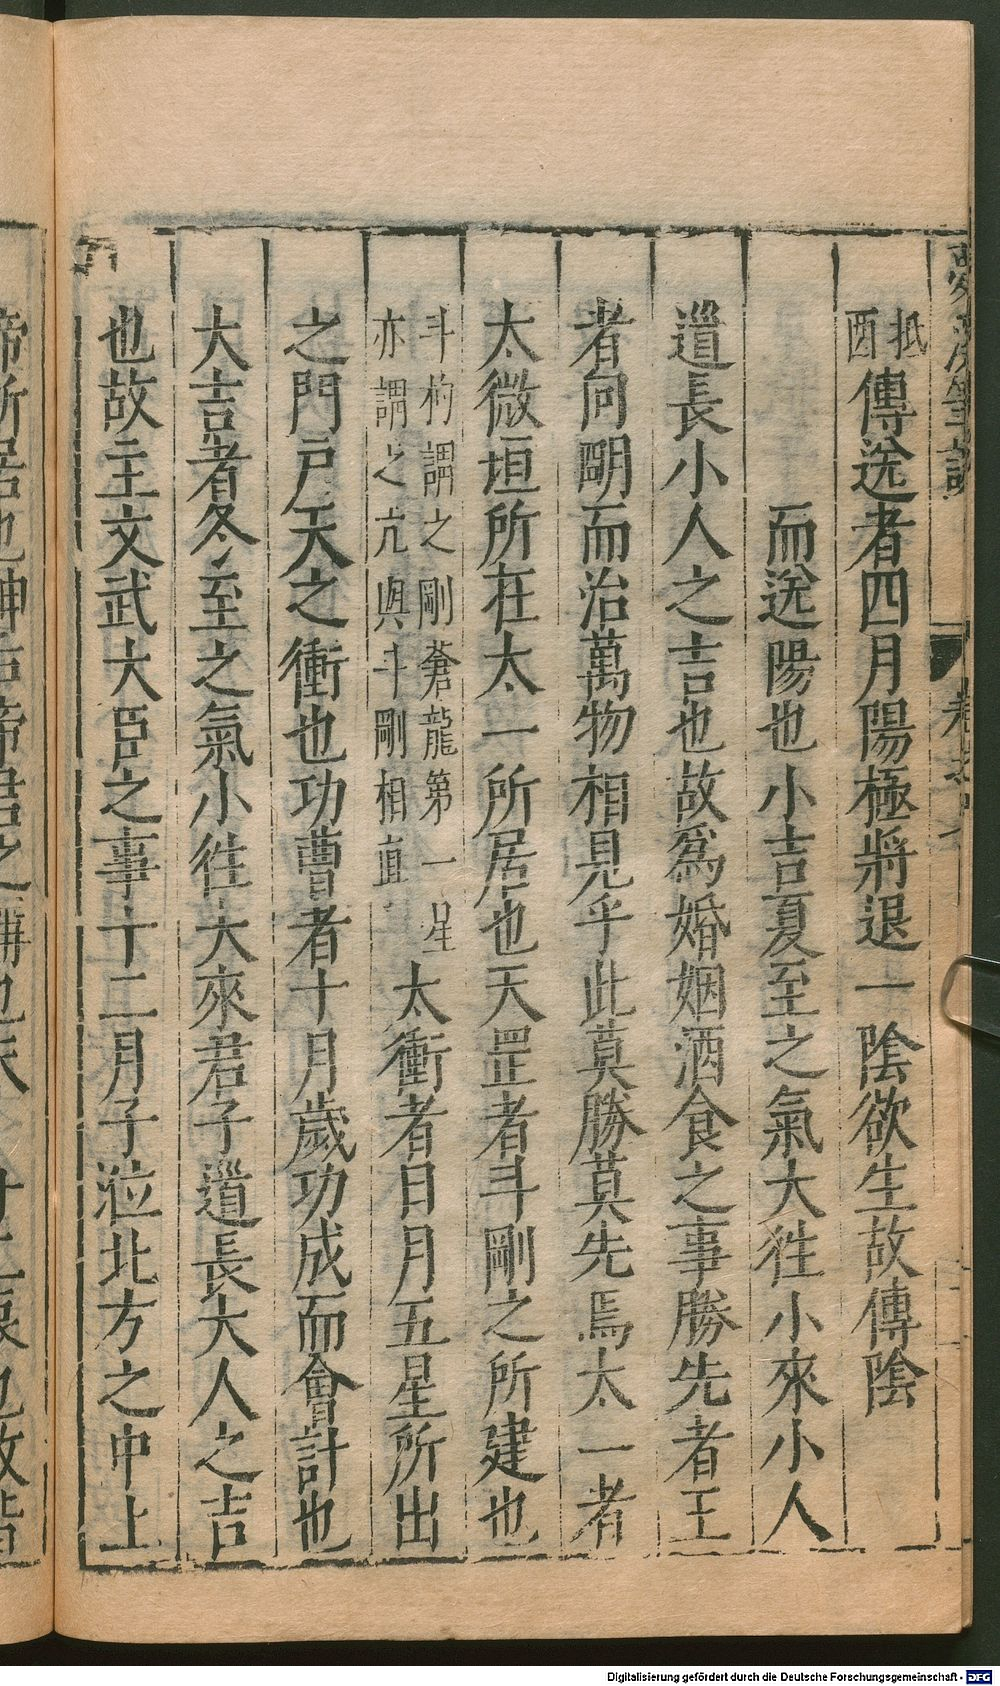 夢溪筆談
抵酉傳送者四月陽極將退一陰欲生故傳陰
而送陽也小吉夏至之氣大徃小來小人
道長小人之吉也故爲婚姻酒食之事勝先者王
者向明而治萬物相見乎此莫勝莫先焉太一者
太微垣所在太一所居也天罡者斗剛之所建也
斗杓謂之剛蒼龍第一星
亦謂之亢與斗剛相直
太衝者日月五星所出
之門戸天之衝也功曹者十月歲功成而會計也
大吉者冬至之氣小徃大來君子道長大人之吉
也故主文武大臣之事十二月子位北方之中上
帝所居也神后帝君之稱也天
Digitalisierung gefördert durch die Deutsche Forschungsgemeinschaft - DFG